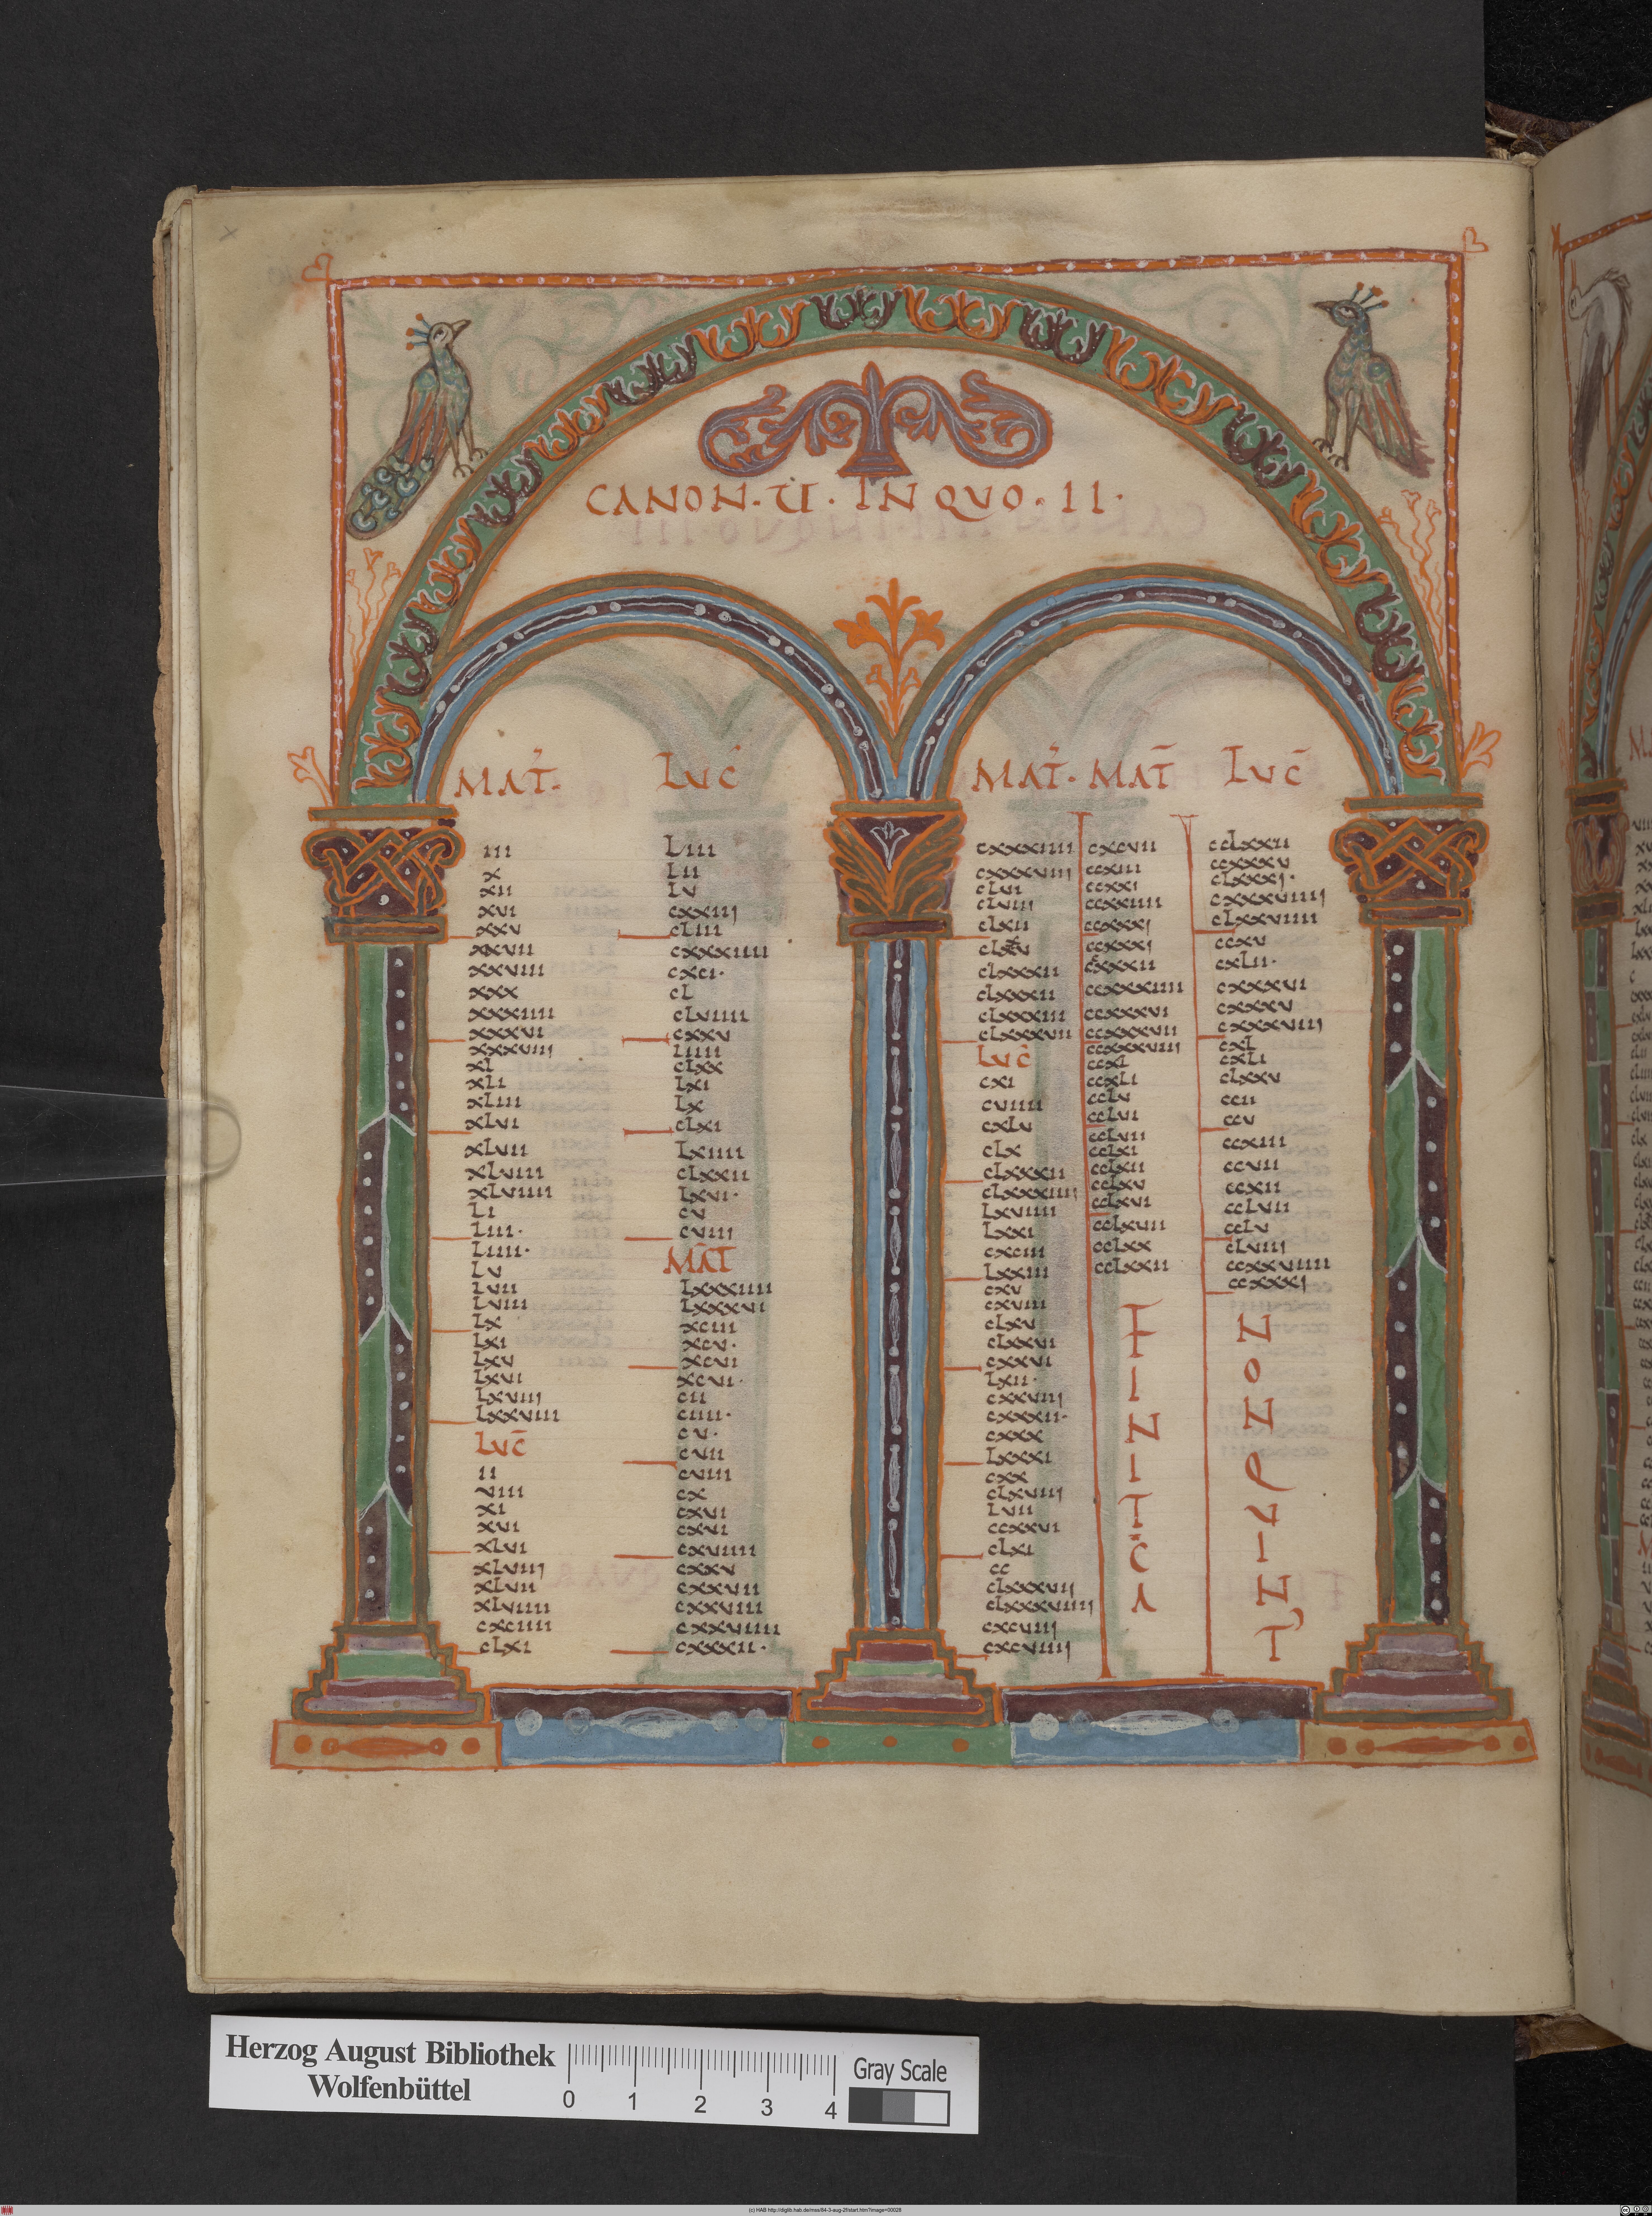 CANON · U · IN QUO · II ·
MAT ·
III
X
XII
XVI
XXV
XXVII
XXVIII
XXX
XXXIIII
XXXVI
XXXVIII
XL
XLI
XLIII
XLVI
XLVII
XLVIII
XLVIIII
LI
LIII ·
LIIII ·
LV
LVII
LVIII
LX
LXI
LXV
LXVI
LXVIII
LXXVIII
LUC̄
II
VIII
XI
XVI
XLVI
XLVIII
XLVII
XLVIIII
CXCIIII
CLXI
LUC
LIII
LII
LV
CXXIII
CLIII
CXXXIIII
CXCI ·
CL
CLVIIII
CXXV
LIIII
CLXX
LXI
LX
CLXI
LXIIII
CLXXII
LXVI ·
CV
CVIII
MAT
LXXXIIII
LXXXVI
XCIII
XCV ·
XCVI
XCVI ·
CII
CIIII ·
CV ·
CVII
CVIII
CX
CXVI
CXVI
CXVIIII
CXXV
CXXVII
CXXVIII
CXXVIIII
CXXXII ·
MAT ·
CXXXIIII
CXXXVIII
CLVI
CLVIII
CLXII
CLXXXII
CLXXXII
CLXXXIII
CLXXXVII
LUC
CXI
CVIIII
CXLV
CLX
CLXXXII
CLXXXIIII
LXVIIII
LXXI
CXCIII
LXXIII
CXV
CXVIII
CLXV
CLXXVI
CXXVI
LXII ·
CXXVIII
CXXXII ·
CXXX
LXXXI
CXX
CLXVIII
LVII
CCXXVI
CLXI
CC
CLXXXVII
CLXXXVIIII
CXCVIII
CXCVIIII
MAT̄
CXCVII
CCXIII
CCXXI
CCXXIIII
CCXXXI
CCXXXI
CCXXXII
CCXXXIIII
CCXXXVI
CCXXXVII
CCXXXVIII
CCXL
CCXLI
CCLV
CCLVI
CCLVII
CCLXI
CCLXII
CCLXV
CCLXVI
CCLXVII
CCLXX
CCLXXII
F
I
N
I
T
C̄
A
LUC̄
CCLXXII
CCXXXV
CLXXXI ·
CXXXVIIII
CLXXVIIII
CCXV
CXLII ·
CXXXVI
CXXXV
CXXXVIII
CXL
CXLI
CLXXV
CCII
CCV
CCXIII
CCVII
CCXII
CCLVII
CCLV
CLVIII
CCXXVIIII
CCXXXI
N
O
N
Q
V
I
N
T
Herzog August Bibliothek
Wolfenbüttel
0 1 2 3 4
Gray Scale
(c) HAB http://diglib.hab.de/mss/84-3-aug-2f/start.htm?image=00028